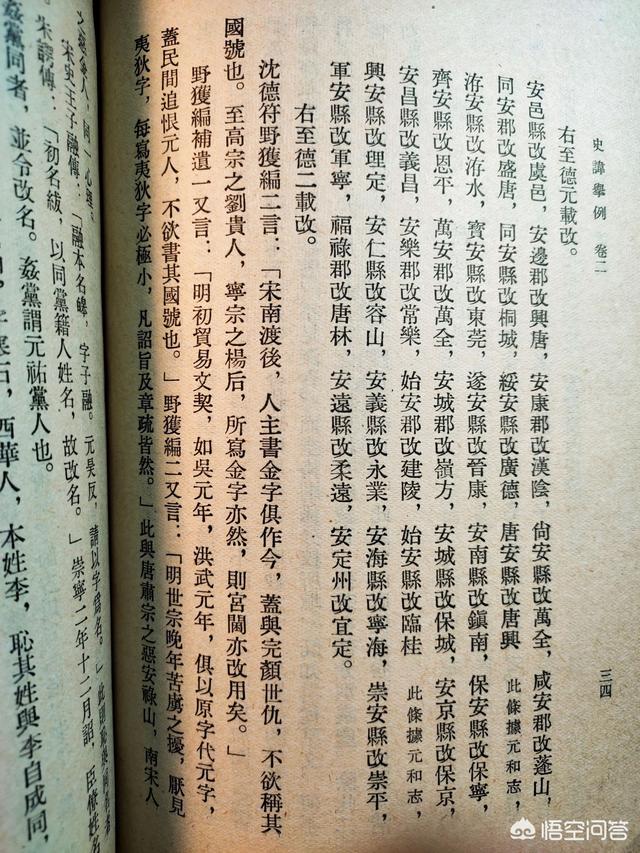 史諱舉例 卷二
三四
右至德元載改。
安邑縣改虞邑，安邊郡改興唐，安康郡改漢陰，尙安縣改萬全，咸安郡改蓬山，
同安郡改盛唐，同安縣改桐城，綏安縣改廣德，唐安縣改唐興此條據元和志，
洊安縣改洊水，寶安縣改東莞，遂安縣改晉康，安南縣改鎭南，保安縣改保寧，
齊安縣改恩平，萬安郡改萬全，安城郡改嶺方，安城縣改保城，安京縣改保京，
安昌縣改義昌，安樂郡改常樂，始安郡改建陵，始安縣改臨桂此條據元和志，
興安縣改理定，安仁縣改容山，安義縣改永業，安海縣改寧海，崇安縣改崇平，
軍安縣改軍寧，福祿郡改唐林，安遠縣改柔遠，安定州改宜定。
右至德二載改。
沈德符野獲編二言：「宋南渡後，人主書金字俱作今，蓋與完顏世仇，不欲稱其
國號也。至高宗之劉貴人，寧宗之楊后，所寫金字亦然，則宮閫亦改用矣。」
野獲編補遺一又言：「明初貿易文契，如吳元年，洪武元年，俱以原字代元字，
蓋民間追恨元人，不欲書其國號也。」野獲編二又言：「明世宗晚年苦虜之擾，厭見
夷狄字，每寫夷狄字必極小，凡詔旨及章疏皆然。」此與唐肅宗之惡安祿山，南宋人
同一心理。
宋史王子融傳：「融本名皡，字子融。元昊反，請以字爲名。」
朱諤傳：「初名紱，以同黨籍人姓名，故改名。」崇寧二年十二月詔，臣僚姓名
姦黨同者，並令改名。姦黨謂元祐黨人也。
西華人，本姓李，恥其姓與李自成同，
悟空问答